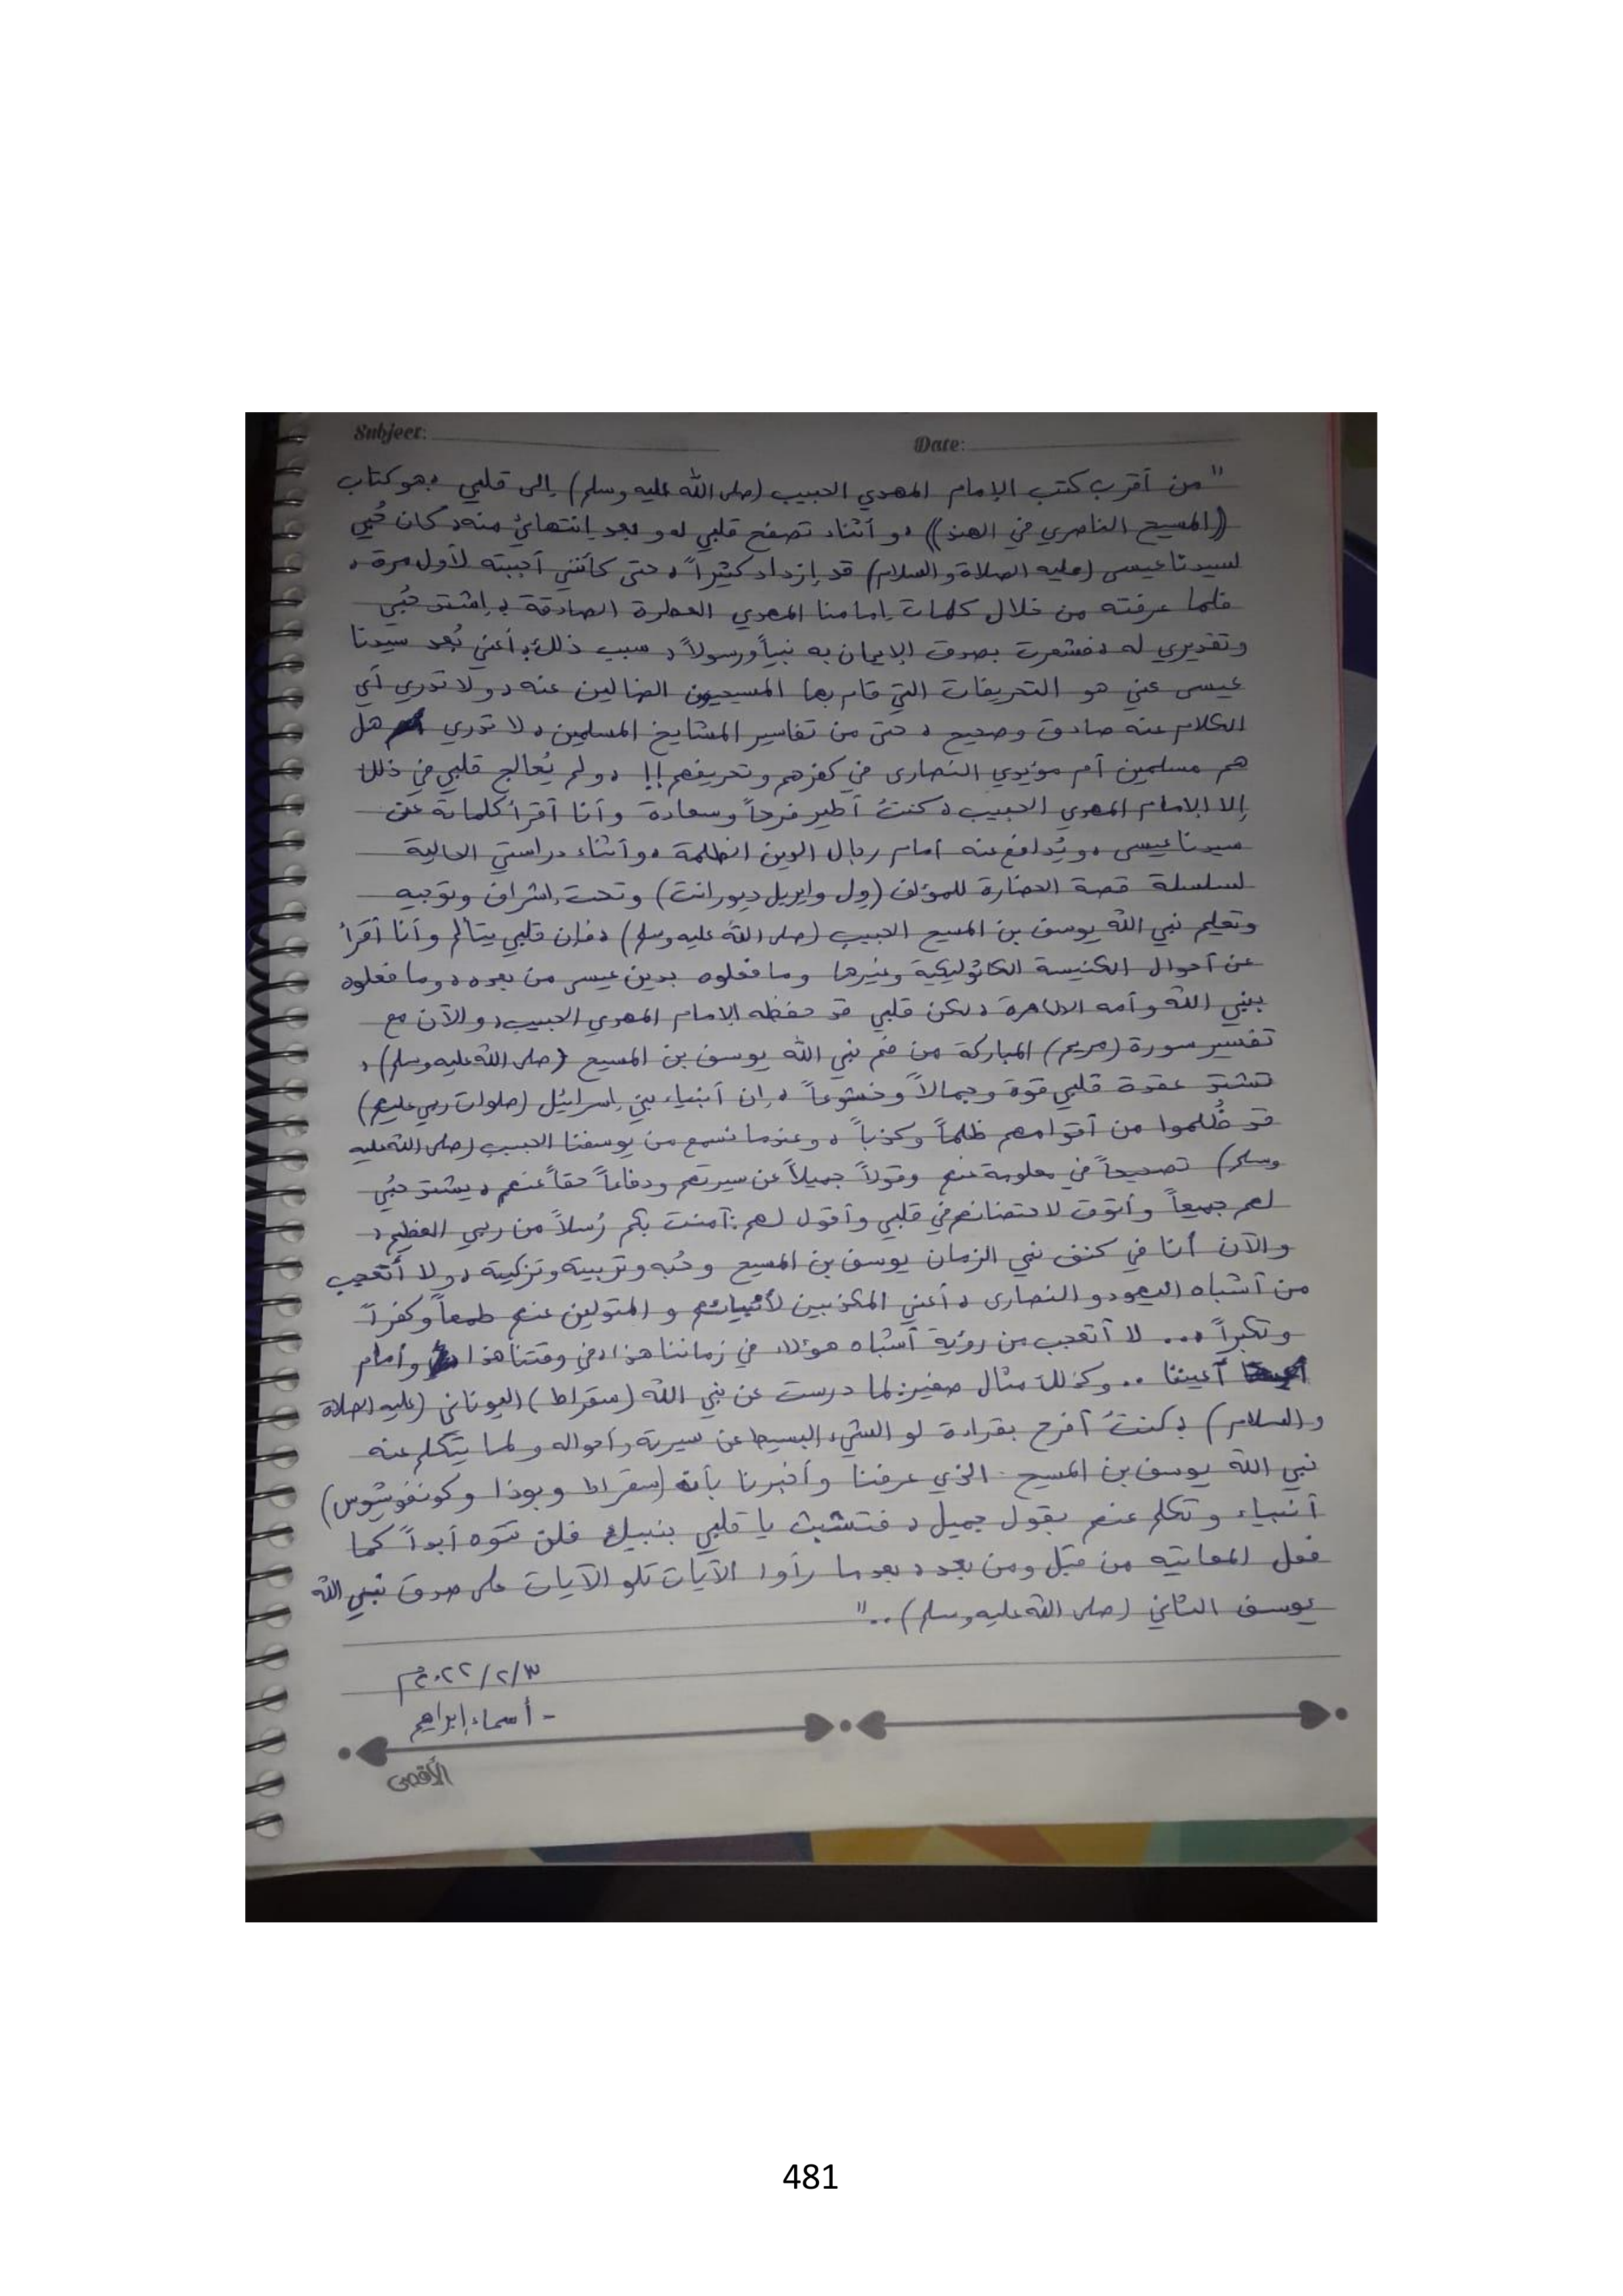 Subject:
Date:
"من أقرب كتب الإمام المهدي الحبيب (صلى الله عليه وسلم) إلى قلبي ، هو كتاب
((المسيح الناصري في الهند)) ، و أثناء تصفح قلبي له و بعد إنتهائي منه ، كان حُبي
لسيدنا عيسى (عليه الصلاة والسلام) قد إزداد كثيراً ، حتى كأنني أحببته لأول مرة ،
فلما عرفته من خلال كلمات إمامنا المهدي العطرة الصادقة ، إشتد حُبي
وتقديري له ، فشعرت بصدق الإيمان به نبياً ورسولاً ، سبب ذلك ، أعني بُعد سيدنا
عيسى عني هو التحريفات التي قام بها المسيحيون الضالين عنه ، و لا تدري أي
الكلام عنه صادق وصحيح ، حتى من تفاسير المشايخ المسلمين ، لا تدري هل
هم مسلمين أم مؤيدي النصارى في كفرهم وتحريفهم !! ، و لم يُعالج قلبي في ذلك
إلا الإمام المهدي الحبيب ، كنتُ أطير فرحاً وسعادة و أنا أقرأ كلماته عن
سيدنا عيسى ، و يُدافع عنه أمام رجال الدين الظلمة ، و أثناء دراستي الحالية
لسلسلة قصة الحضارة للمؤلف (ول وايريل ديورانت) و تحت إشراف وتوجيه
وتعليم نبي الله يوسف بن المسيح الحبيب (صلى الله عليه وسلم) ، فإن قلبي يتألم و أنا أقرأ
عن أحوال الكنيسة الكاثوليكية وغيرها وما فعلوه بدين عيسى من بعده ، و ما فعلوه
بنبي الله وأمه الطاهرة ، لكن قلبي قد حفظه الإمام المهدي الحبيب ، و الآن مع
تفسير سورة (مريم) المباركة من فم نبي الله يوسف بن المسيح (صلى الله عليه وسلم) ،
تشتد عقدة قلبي قوة وجمالاً وخشوعاً ، إن أنبياء بني إسرائيل (صلوات ربي عليهم)
قد ظُلموا من أقوامهم ظلماً وكذباً ، و عندما نسمع من يوسفنا الحبيب (صلى الله عليه
وسلم) تصحيحاً في معلومة عنهم وقولاً جميلاً عن سيرتهم ودفاعاً حقاً عنهم ، يشتد حُبي
لهم جميعاً وأتوق لاحتضانهم في قلبي وأقول لهم : آمنت بكم رُسلاً من ربي العظيم ،
والآن أنا في كنف نبي الزمان يوسف بن المسيح و حُبه وتربيته وتزكيته ، و لا أتعجب
من أشباه اليهود و النصارى ، أعني المكذبين لأنبيائهم و المتولين عنهم طمعاً وكفراً
وتكبراً ،... لا أتعجب من رؤية أشباه هؤلاء في زماننا هذا ، في وقتنا هذا وأمام
أعيننا .. وكذلك مثال صغير : لما درست عن نبي الله (سقراط) اليوناني (عليه الصلاة
والسلام) ، كنتُ أفرح بقراءة لو الشيء البسيط عن سيرته و أحواله و لما يتكلم عنه
نبي الله يوسف بن المسيح الذي عرفنا وأخبرنا بأن (سقراط وبوذا وكونفوشيوس)
أنبياء و تكلم عنهم بقول جميل ، فتشبث يا قلبي بنبيك فلن تتوه أبداً كما
فعل المعاتيه من قبل ومن بعد ، بعدما رأوا الآيات تلو الآيات على صدق نبي الله
يوسف الثاني (صلى الله عليه وسلم) .."
٣/٢/٢٠٢٢م
- أسماء إبراهيم
الأقصى
481